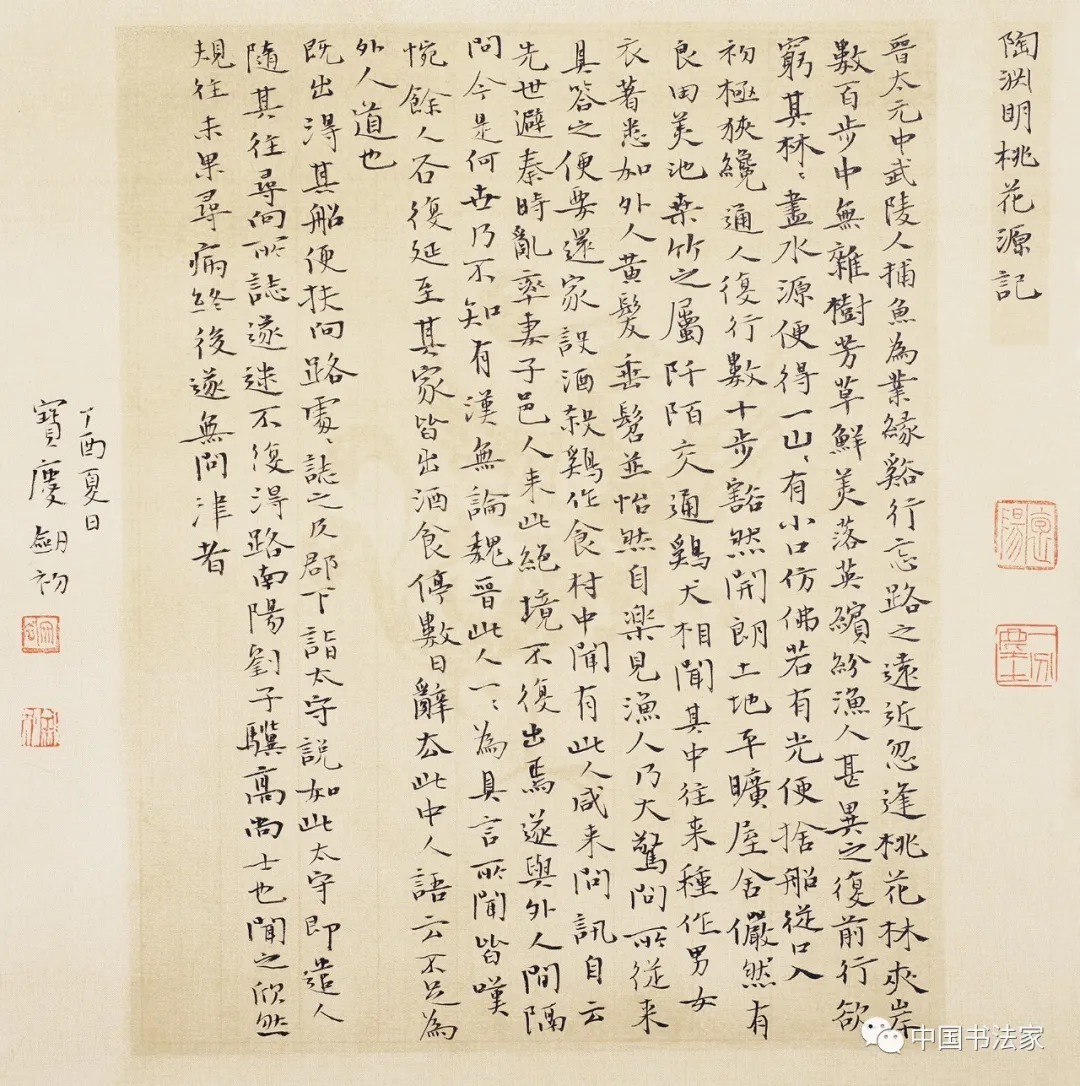 陶渊明桃花源記
晉太元中武陵人捕魚為業緣谿行忘路之遠近忽逢桃花林夾岸
數百步中無雜樹芳草鮮美落英繽紛漁人甚異之復前行欲
窮其林〻盡水源便得一山〻有小口仿佛若有光便捨船從口入
初極狹纔通人復行數十步豁然開朗土地平曠屋舍儼然有
良田美池桑竹之屬阡陌交通鷄犬相聞其中往来種作男女
衣著悉如外人黄髮垂髫並怡然自樂見漁人乃大驚問所從来
具答之便要還家設酒殺鷄作食村中聞有此人咸来問訊自云
先世避秦時亂率妻子邑人来此絕境不復出焉遂與外人間隔
問今是何世乃不知有漢無論魏晉此人一〻為具言所聞皆嘆
惋餘人各復延至其家皆出酒食停數日辭去此中人語云不足為
外人道也
既出得其船便扶向路處〻誌之及郡下詣太守說如此太守即遣人
隨其往尋向所誌遂迷不復得路南陽劉子驥高尚士也聞之欣然
規往未果尋病終後遂無問津者
丁酉夏日
寶慶劒初
中国书法家